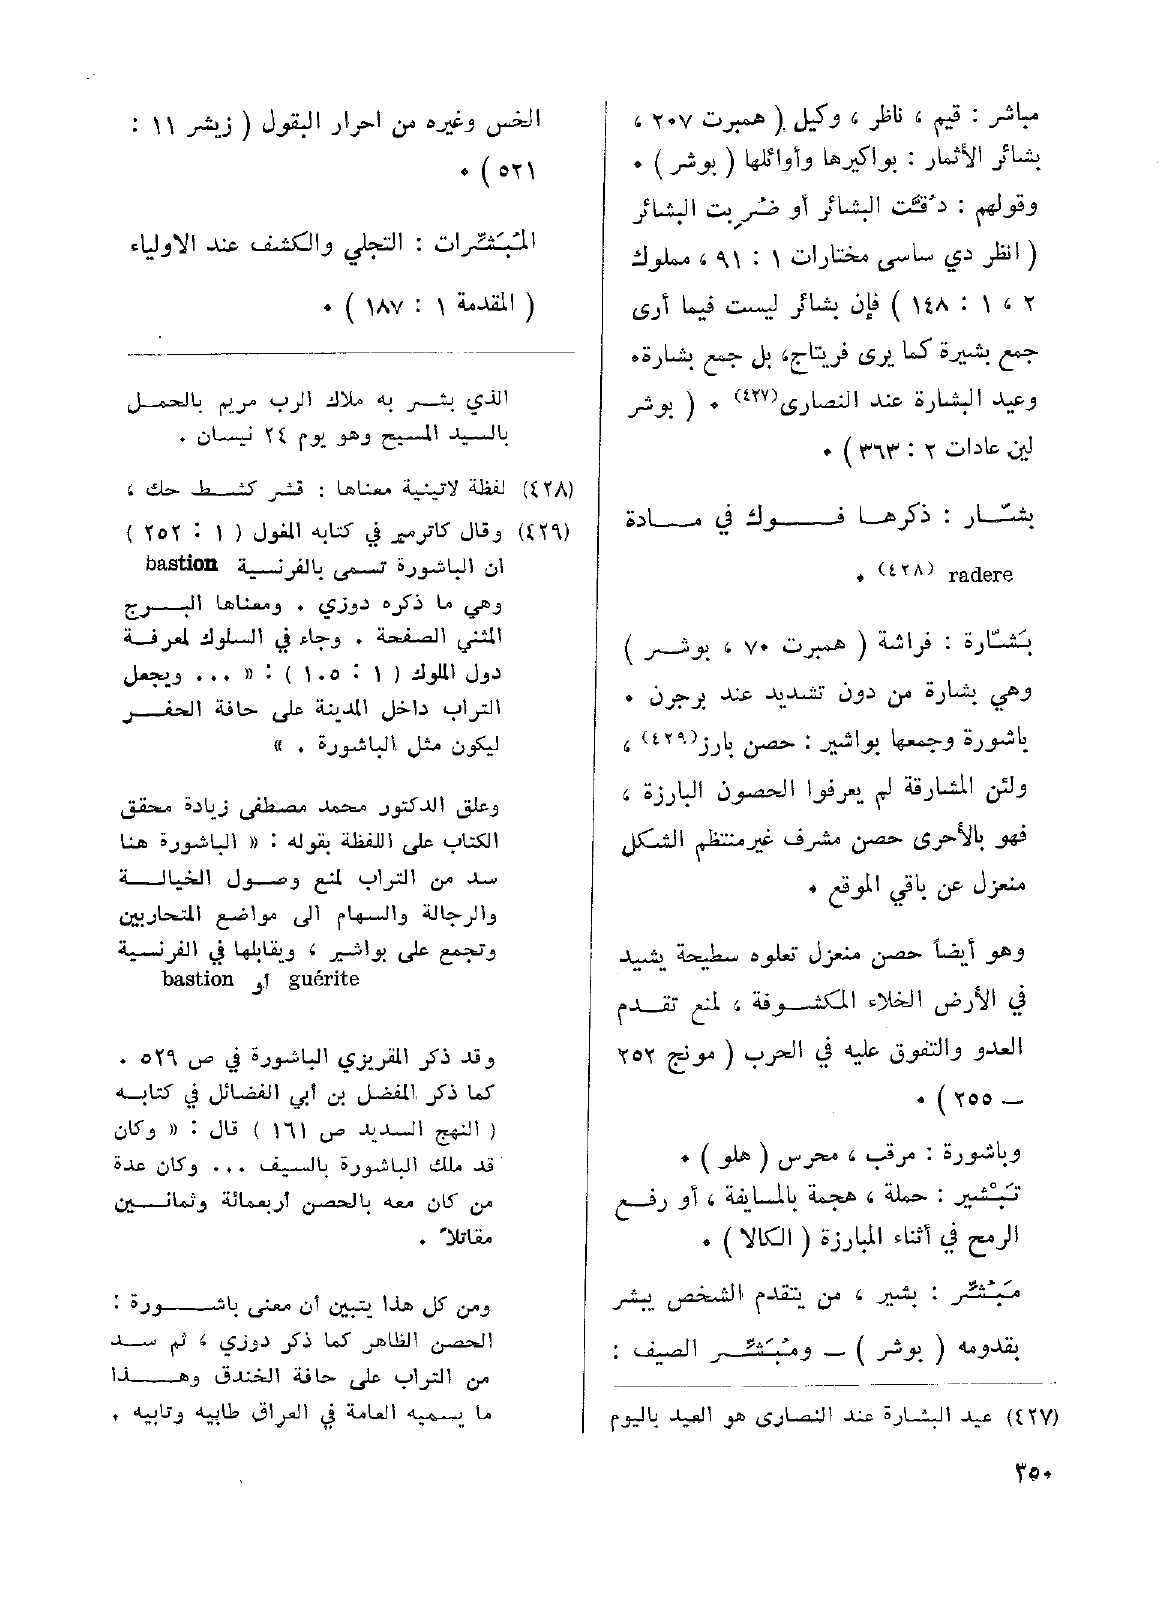 مباشر : قيم ، ناظر ، وكيل ( همبرت ٢٠٧ ،
بشائر الأثمار : بواكيرها وأوائلها ( بوشر ) ٠
وقولهم : دُقّت البشائر أو ضُرِبت البشائر
( انظر دي ساسى مختارات ١ : ٩١ ، مملوك
٢ ، ١ : ١٤٨ ) فإن بشائر ليست فيما أرى
جمع بشيرة كما يرى فريتاج، بل جمع بشارة٠
وعيد البشارة عند النصارى(٤٢٧) ٠ ( بوشر
لين عادات ٢ : ٣٦٣ ) ٠
بشّار : ذكرها فوك في مادة
radere (٤٢٨) ٠
بَشّارة : فراشة ( همبرت ٧٠ ، بوشر )
وهي بشارة من دون تشديد عند برجرن ٠
باشورة وجمعها بواشير : حصن بارز(٤٢٩) ،
ولئن المشارقة لم يعرفوا الحصون البارزة ،
فهو بالأحرى حصن مشرف غير منتظم الشكل
منعزل عن باقي الموقع ٠
وهو أيضاً حصن منعزل تعلوه سطيحة يشيد
في الأرض الخلاء المكشوفة ، لمنع تقدم
العدو والتفوق عليه في الحرب ( مونج ٢٥٢
ــ ٢٥٥ ) ٠
وباشورة : مرقب ، محرس ( هلو ) ٠
تَبْشير : حملة ، هجمة بالمسايفة ، أو رفع
الرمح في أثناء المبارزة ( الكالا ) ٠
مَبُشِّر : بشير ، من يتقدم الشخص يبشر
بقدومه ( بوشر ) ــ ومُبَشِّر الصيف :
(٤٢٧) عيد البشارة عند النصارى هو العيد باليوم
الخس وغيره من احرار البقول ( زيشر ١١ :
٥٢١ ) ٠
المُبَشِّرات : التجلي والكشف عند الاولياء
( المقدمة ١ : ١٨٧ ) ٠
الذي بشر به ملاك الرب مريم بالحمل
بالسيد المسيح وهو يوم ٢٤ نيسان ٠
(٤٢٨) لفظة لاتينية معناها : قشر كشط حك ،
(٤٢٩) وقال كاترمير في كتابه المغول ( ١ : ٢٥٢ )
ان الباشورة تسمى بالفرنسية bastion
وهي ما ذكره دوزي . ومعناها البرج
المثني الصفحة . وجاء في السلوك لمعرفة
دول الملوك ( ١ : ١٠٥ ) : « ... ويجعل
التراب داخل المدينة على حافة الحفر
ليكون مثل الباشورة . »
وعلق الدكتور محمد مصطفى زيادة محقق
الكتاب على اللفظة بقوله : « الباشورة هنا
سد من التراب لمنع وصول الخيالة
والرجالة والسهام الى مواضع المتحاربين
وتجمع على بواشير ، ويقابلها في الفرنسية
guérite او bastion
وقد ذكر المقريزي الباشورة في ص ٥٢٩ .
كما ذكر المفضل بن أبي الفضائل في كتابه
( النهج السديد ص ١٦١ ) قال : « وكان
قد ملك الباشورة بالسيف ... وكان عدة
من كان معه بالحصن أربعمائة وثمانين
مقاتلاً .
ومن كل هذا يتبين أن معنى باشورة :
الحصن الظاهر كما ذكر دوزي ، ثم سد
من التراب على حافة الخندق وهذا
ما يسميه العامة في العراق طابيه وتابيه .
٣٥٠